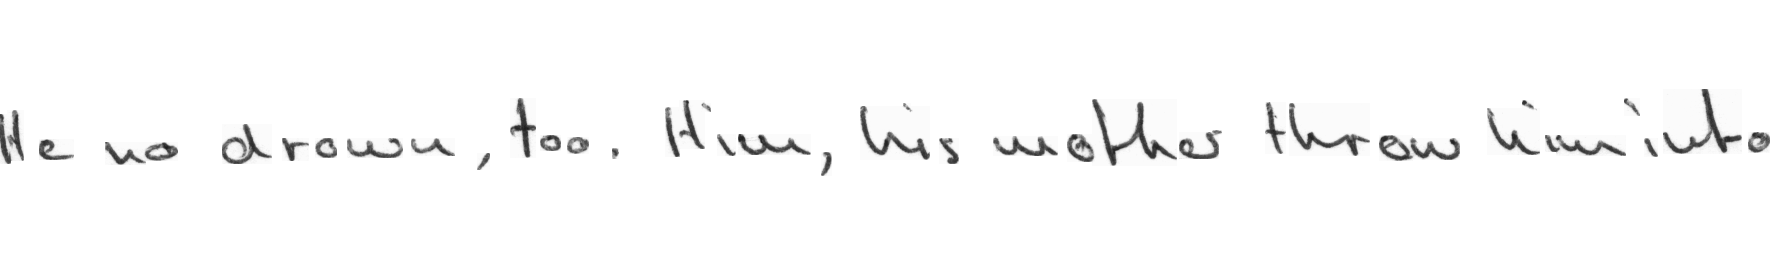 He no drown, too. Him, his mother throw him into